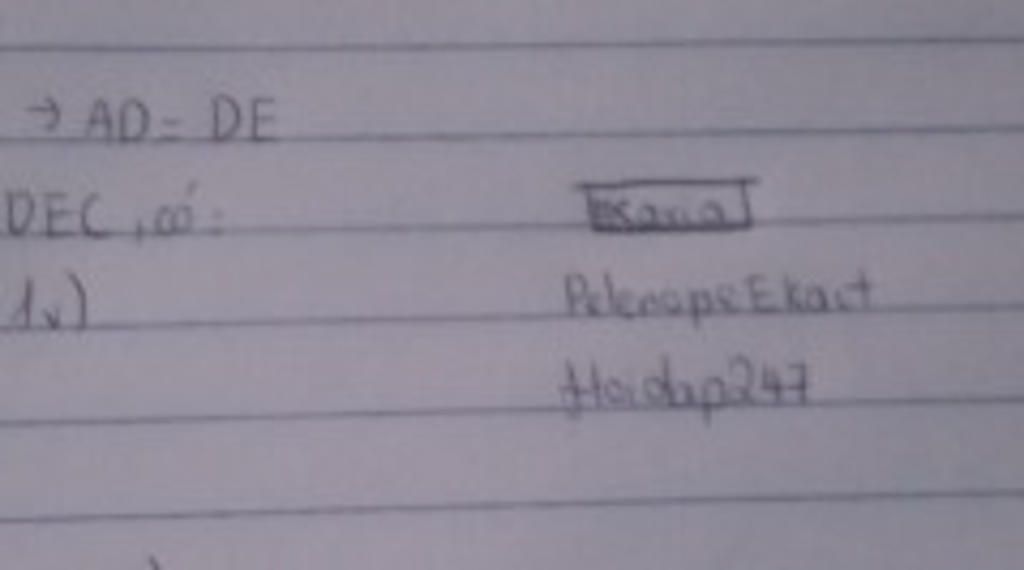 → AD = DE
DEC, có:
1v)
PelenopeEkart
Hoidap247